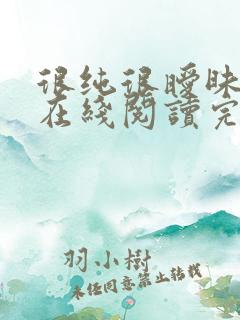 很纯很暧昧
在綫閱讀完
羽小樹
未经同意禁止转载